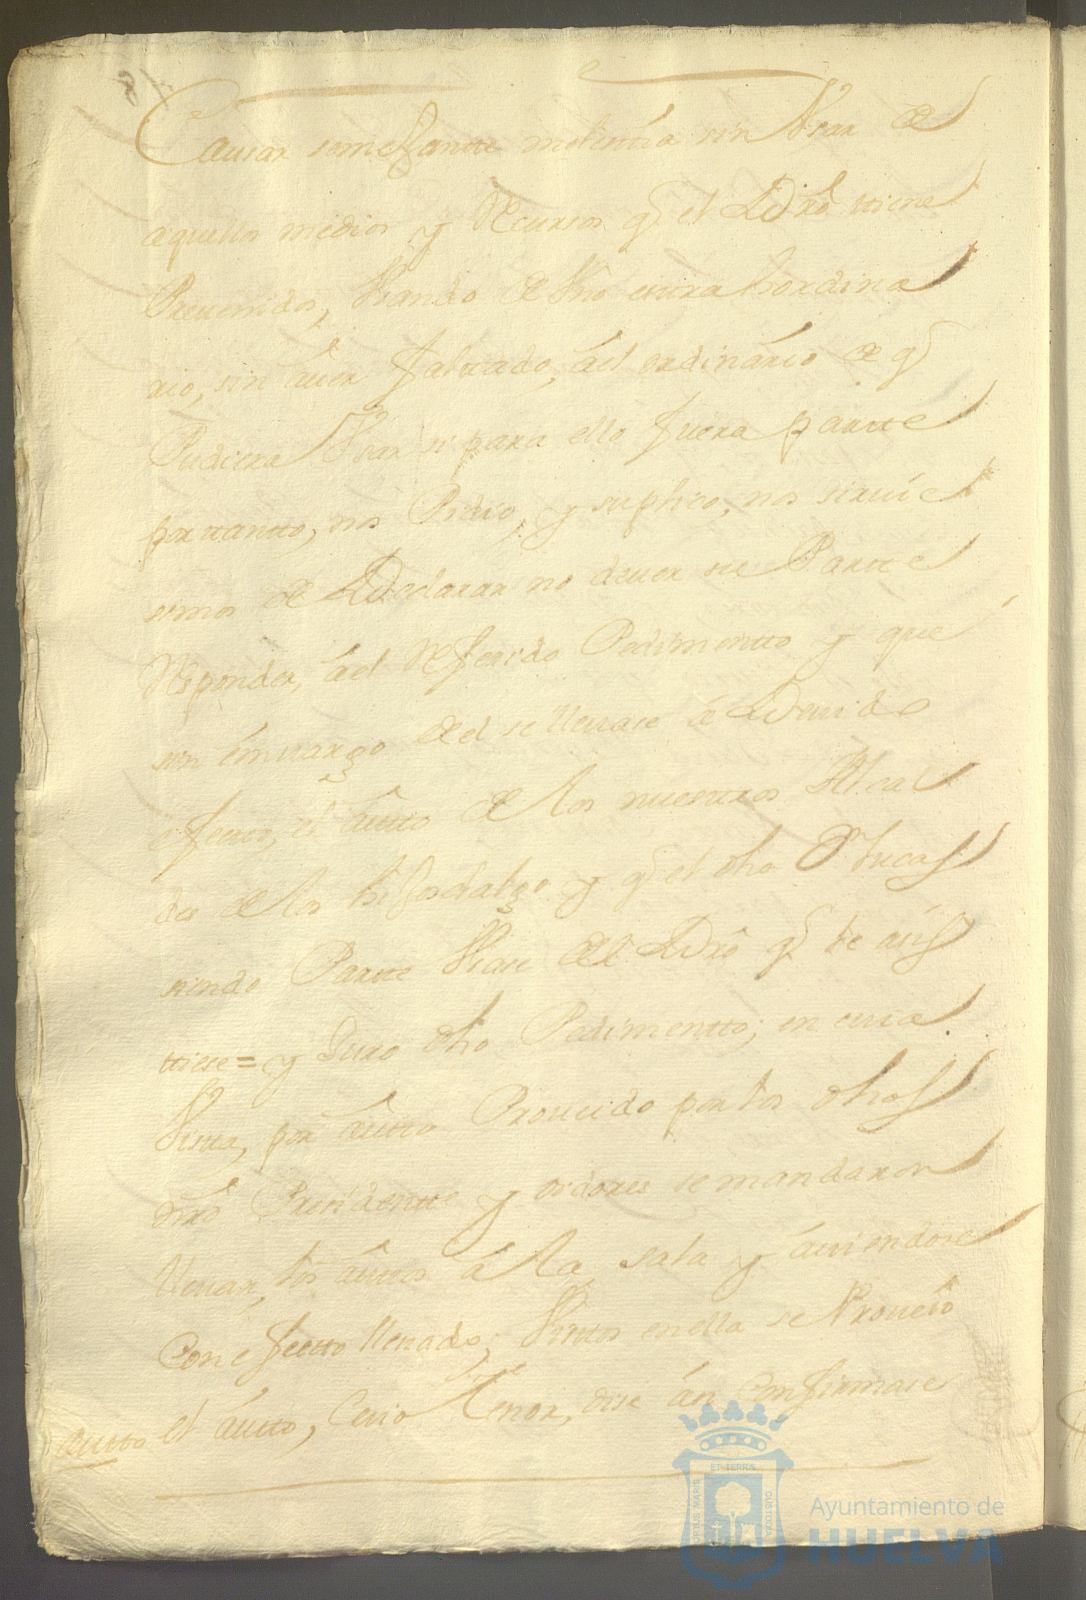 8
Causar semejantte molestia sin Usar de
aquellos medios y Recursos q el Dro ttiene
Prevenidos, Usando de Uno extrahordina
rio, sin aver faltado, ael ordinario de q
Pudiera Usar si para ello fuera partte
por tantto, nos Pidio, y suplico, nos sirvie
semos de Declarar no dever su Partte
Responder, ael Referido Pedimentto y que
sin embargo del se llevase a Devido
efecto, el autto de los nuestros Alcal
des de los hijosdalgo y q el dho Dn Lucas
siendo Partte Usase del Dro q le asis
ttiese = y Juro dho Pedimentto; en cuia
Vista, por autto Proveido por los dhos
nro Presidentte y oidores se mandaron
llevar los auttos a la sala y aviendose
Con efectto llevado, Vistos en ella se Proveio
autto el autto, Cuio Thenor, dise asi Confirmase
Ayuntamiento de
HUELVA